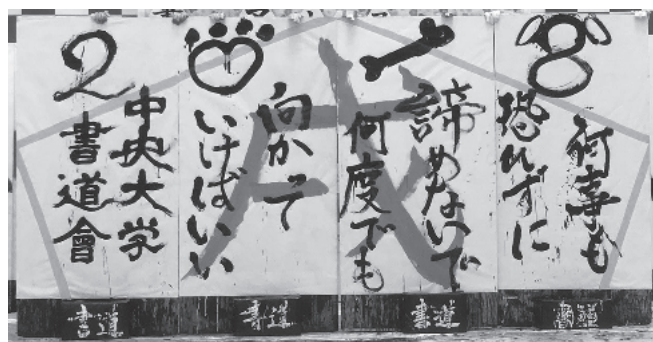 2018
戌
何事も
恐れずに
諦めないで
何度でも
向かって
いけばいい
中央大学
書道會
書道
書道
書道
書道